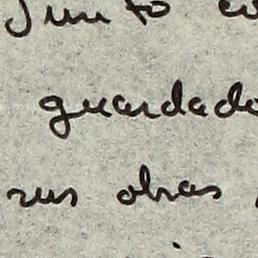 Junto co
guardado
sus obras